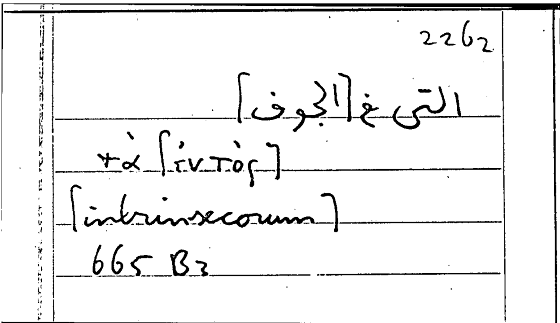 2262
التى فى [الجوف]
τὰ [ἐντὸς]
[intrinsecorum]
665 B2